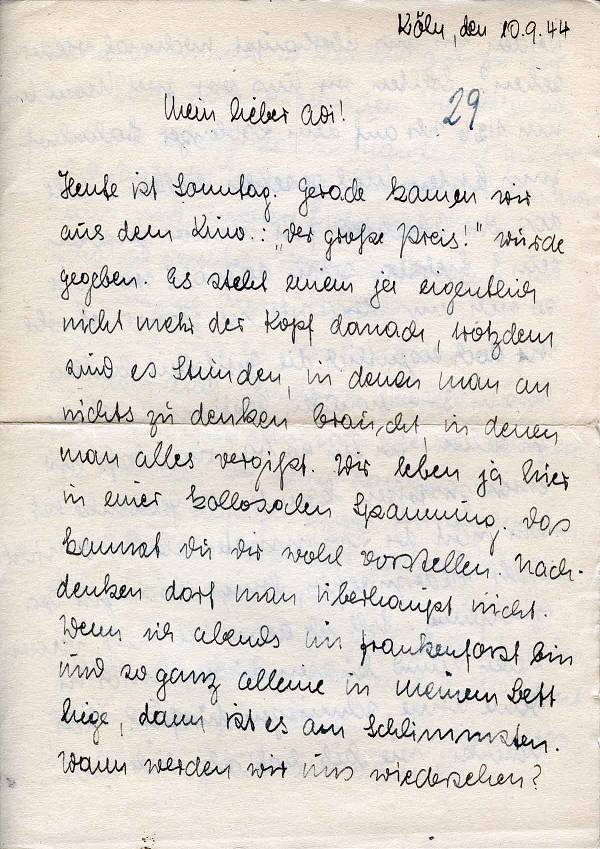 Köln, den 10.9.44
Mein lieber Adi!
29
Heute ist Sonntag. Gerade kamen wir
aus dem Kino.: „Der große Preis!" wurde
gegeben. Es steht einem ja eigentlich
nicht mehr der Kopf danach, trotzdem
sind es Stunden, in denen man an
nichts zu denken braucht, in denen
man alles vergißt. Wir leben ja hier
in einer kollosalen Spannung. Das
kannst du dir wohl vorstellen. Nach-
denken darf man überhaupt nicht.
Wenn ich abends in Frankenforst bin
und so ganz alleine in meinem Bett
liege, dann ist es am Schlimmsten.
Wann werden wir uns wiedersehen?